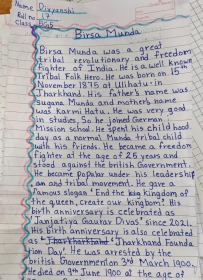 Name Divyanshi
Roll no. 17
Class
Birsa Munda
Birsa Munda was a great
tribal revolutionary and freedom
fighter of India. He is a well known
Tribal Folk Hero. He was born on 15th
November 1875 at Ulihatu in
Jharkhand. His father's name was
Sugana Munda and mother's name
was Karmi Hatu. He was very good
in studies. So he joined German
Mission school. He spent his child hood
day as a normal Munda tribal child
with his friends. He became a freedom
fighter at the age of 25 years and
stood against the british Government.
He became popular under his leadership
and tribal movement. He gave a
famous slogan "End the kingdom of
the queen, create our kingdom". His
birth anniversary is celebrated as
Janjatiya Gaurav Divas' since 2021.
His birth anniversary is also celebrated
as 'Jharkhand Founda
tion Day'. He was arrested by the
british Government on 3rd March 1900.
He died on 9th June 1900 at the age of